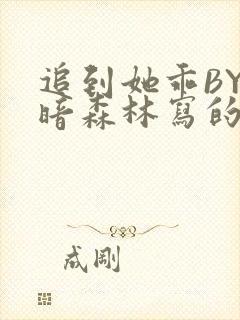 追到她乖BY
暗森林寫的
成剛